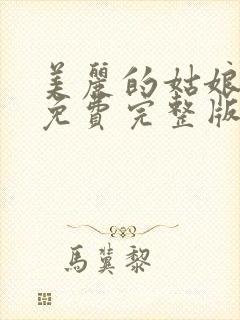 美麗的姑娘
免費完整版
馬蓂黎